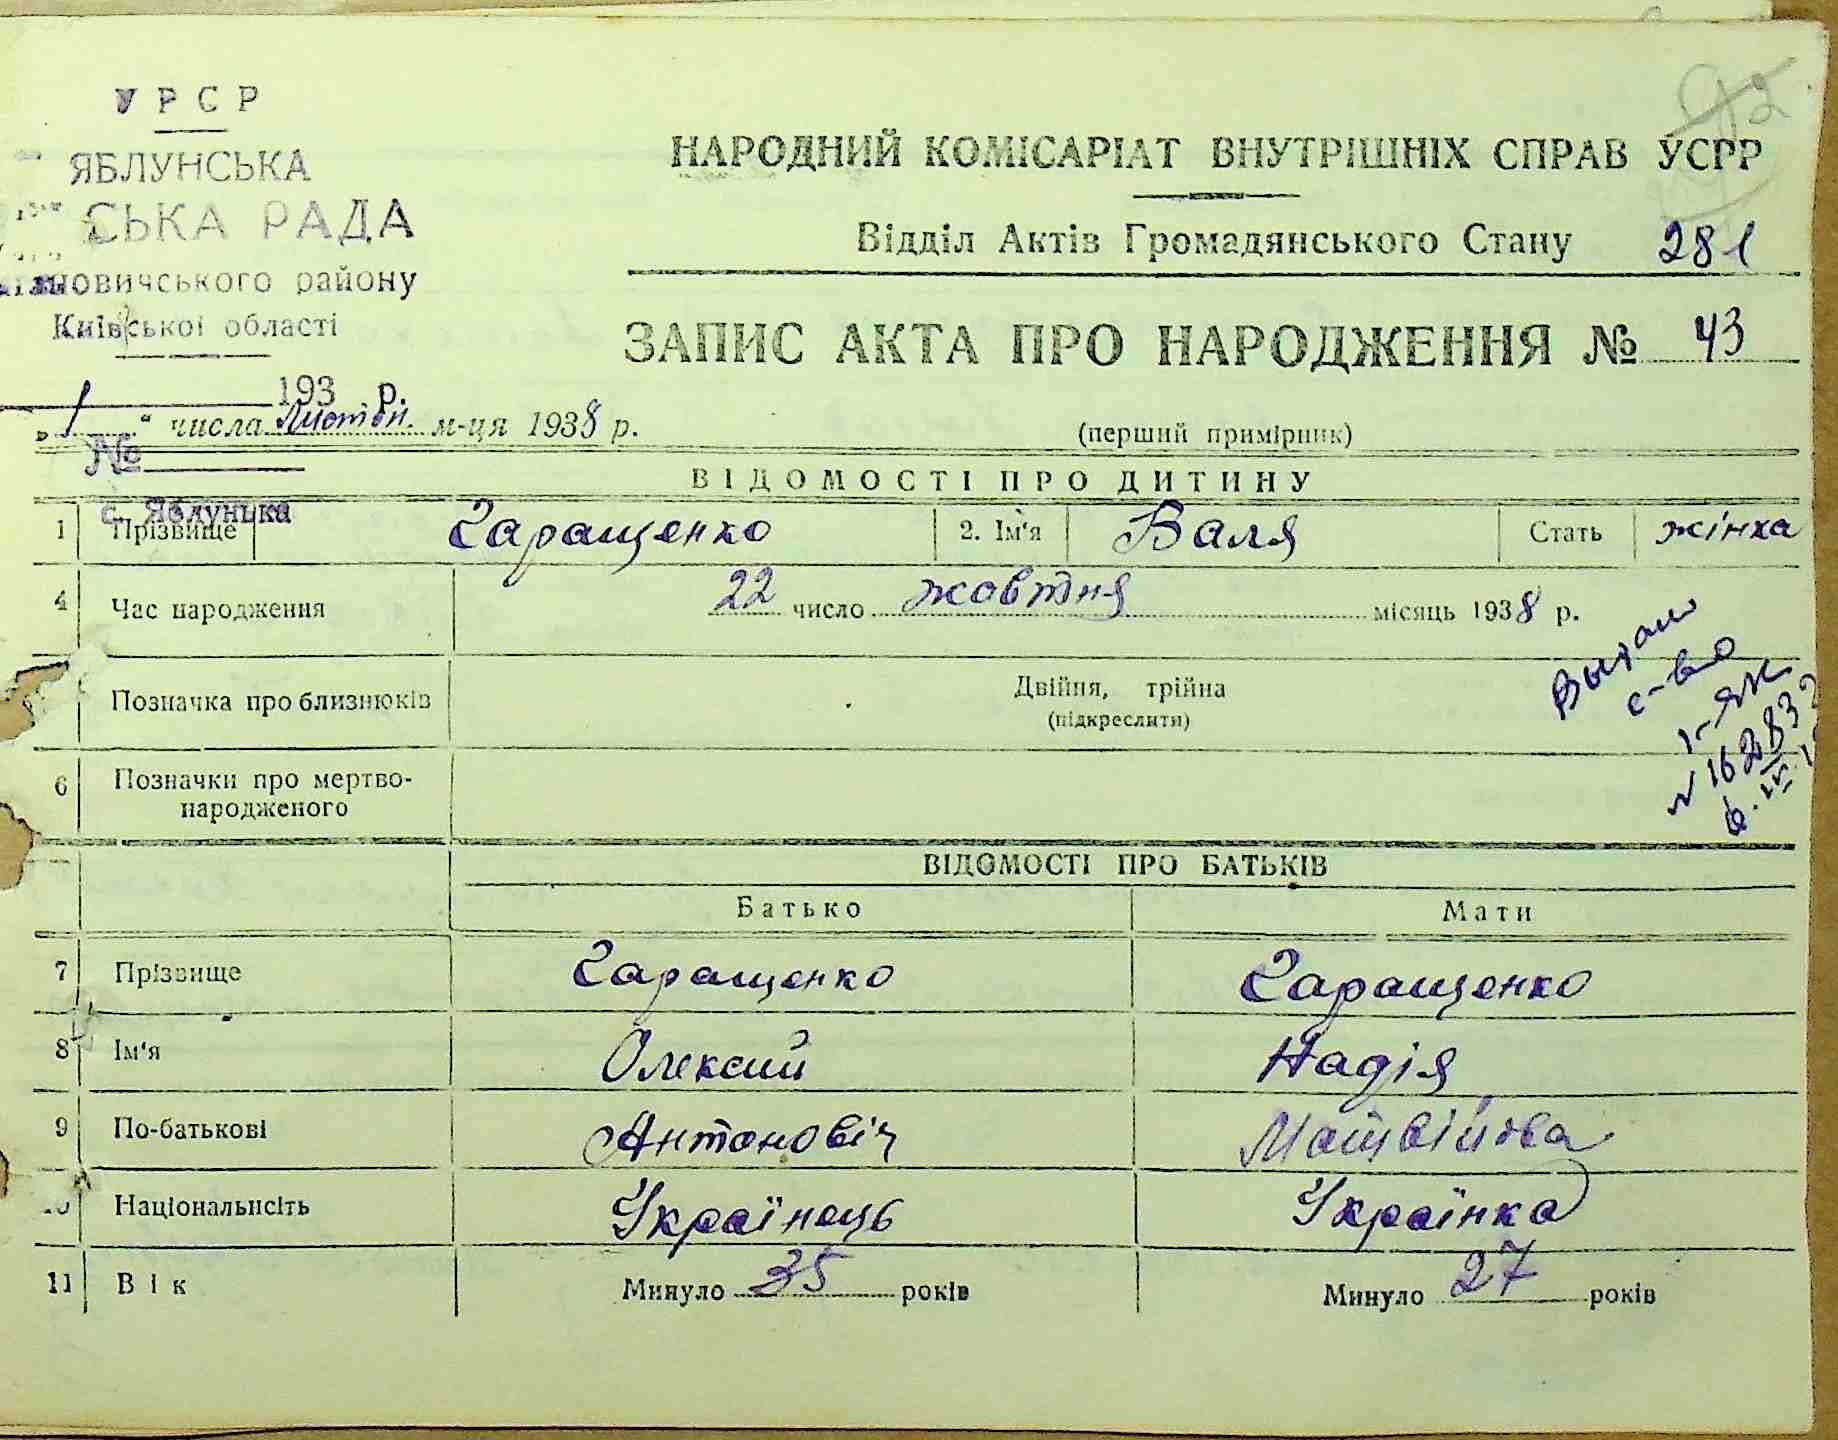 УРСР
ЯБЛУНСЬКА
СЬКА РАДА
новичського району
Київської області
193 р.
№
с. Яблунька
92
НАРОДНИЙ КОМІСАРІАТ ВНУТРІШНІХ СПРАВ УСРР
Відділ Актів Громадянського Стану 281
ЗАПИС АКТА ПРО НАРОДЖЕННЯ № 43
„ 1 “ числа Листоп. м-ця 1938 р.
(перший примірник)
ВІДОМОСТІ ПРО ДИТИНУ
1 Прізвище Гаращенко 2. Ім'я Валя Стать жінка
4 Час народження 22 число жовтня місяць 1938 р.
Позначка про близнюків Двійня, трійна
(підкреслити)
6 Позначки про мертво-
народженого
с-во
I-ЯК
ВІДОМОСТІ ПРО БАТЬКІВ
Батько Мати
7 Прізвище Гаращенко Гаращенко
8 Ім'я Олексий Надія
9 По-батькові Антоновіч Матвійова
10 Національнсіть Українець Українка
11 Вік Минуло 35 років Минуло 27 років